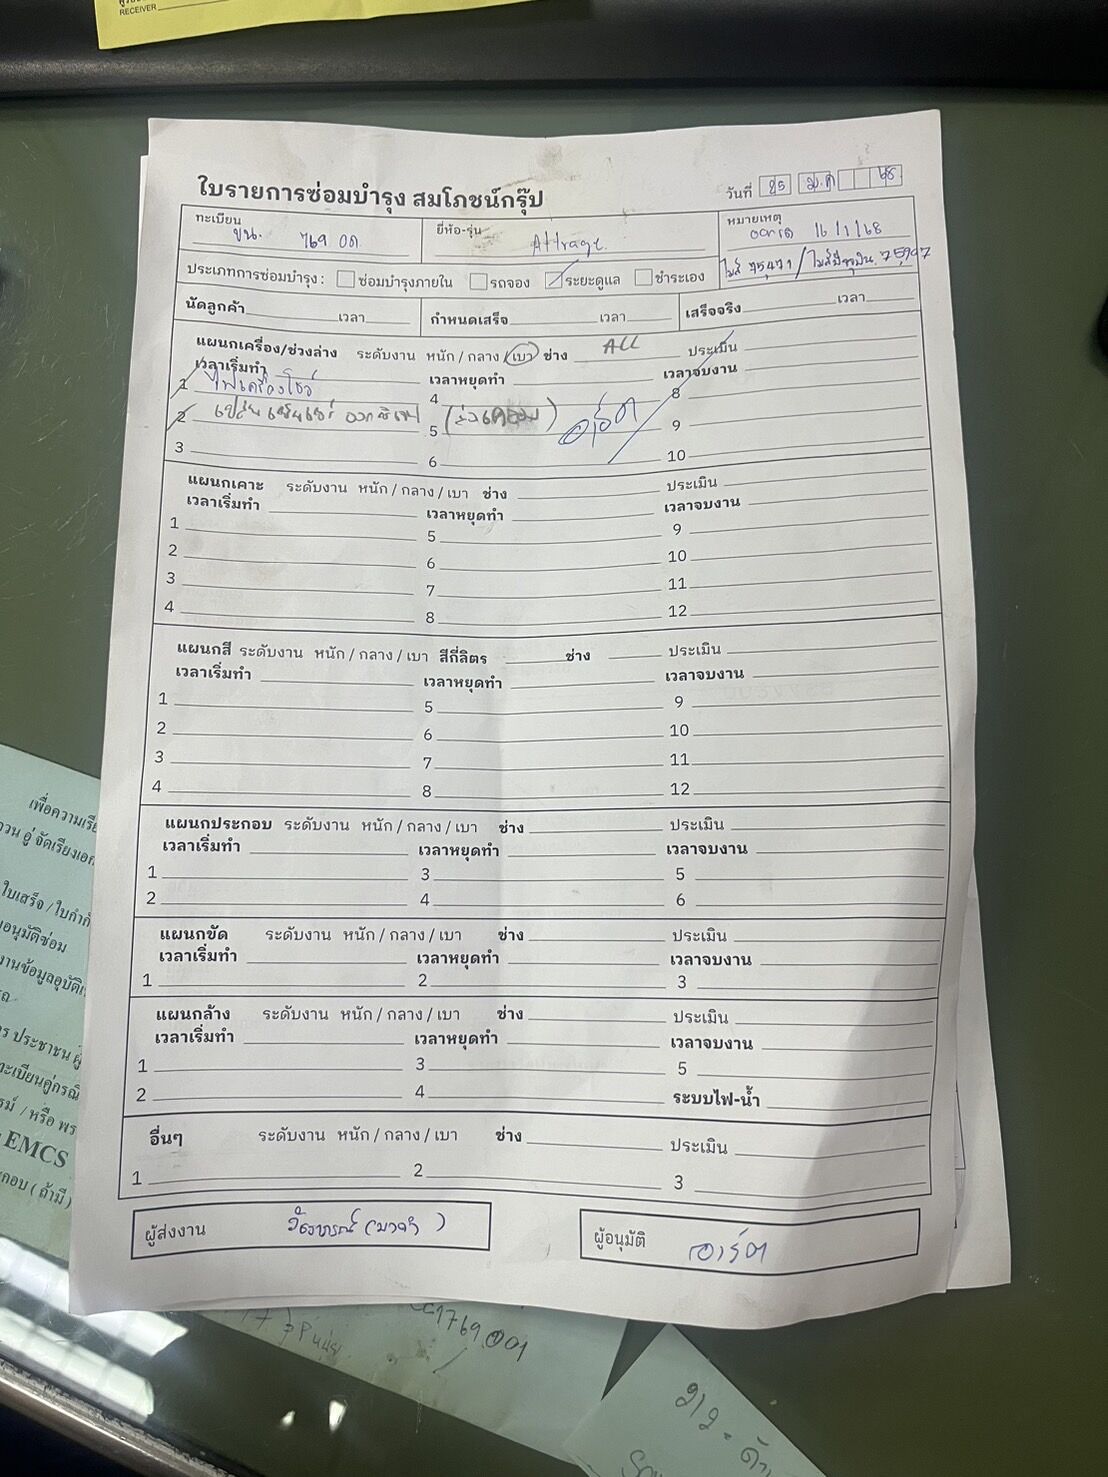 RECEIVER
ใบรายการซ่อมบำรุง สมโภชน์กรุ๊ป
วันที่ 25 ม.ค 68
ทะเบียน ขน. 769 กก.
ยี่ห้อ-รุ่น Attrage.
หมายเหตุ ออกรถ 16/1/68
ไมล์ 75,471 / ไมล์ปัจจุบัน. 75,947
ประเภทการซ่อมบำรุง : ซ่อมบำรุงภายใน รถจอง ระยะดูแล ชำระเอง
นัดลูกค้า เวลา กำหนดเสร็จ เวลา เสร็จจริง เวลา
แผนกเครื่อง/ช่วงล่าง ระดับงาน หนัก / กลาง / เบา ช่าง ALL ประเมิน
เวลาเริ่มทำ เวลาหยุดทำ เวลาจบงาน
1 ไฟเครื่องโชว์ 4 8
2 เปลี่ยนเซ็นเซอร์ ออกซิเจน 5 9
3 6 10
แผนกเคาะ ระดับงาน หนัก / กลาง / เบา ช่าง ประเมิน
เวลาเริ่มทำ เวลาหยุดทำ เวลาจบงาน
1 5 9
2 6 10
3 7 11
4 8 12
แผนกสี ระดับงาน หนัก / กลาง / เบา สีกี่ลิตร ช่าง ประเมิน
เวลาเริ่มทำ เวลาหยุดทำ เวลาจบงาน
1 5 9
2 6 10
3 7 11
4 8 12
แผนกประกอบ ระดับงาน หนัก / กลาง / เบา ช่าง ประเมิน
เวลาเริ่มทำ เวลาหยุดทำ เวลาจบงาน
1 3 5
2 4 6
แผนกขัด ระดับงาน หนัก / กลาง / เบา ช่าง ประเมิน
เวลาเริ่มทำ เวลาหยุดทำ เวลาจบงาน
1 2 3
แผนกล้าง ระดับงาน หนัก / กลาง / เบา ช่าง ประเมิน
เวลาเริ่มทำ เวลาหยุดทำ เวลาจบงาน
1 3 5
2 4 ระบบไฟ-น้ำ
อื่นๆ ระดับงาน หนัก / กลาง / เบา ช่าง ประเมิน
1 2 3
ผู้ส่งงาน
ผู้อนุมัติ อาร์ต
เพื่อความเรีย
จัดเรียงเอก
ใบเสร็จ / ใบกำกั
อนุมัติซ่อม
งานข้อมูลอุบัติเ
ประชาชน ผู้
ทะเบียนคู่กรณี
/ หรือ พร
EMCS
กอบ ( ถ้ามี )
2/2